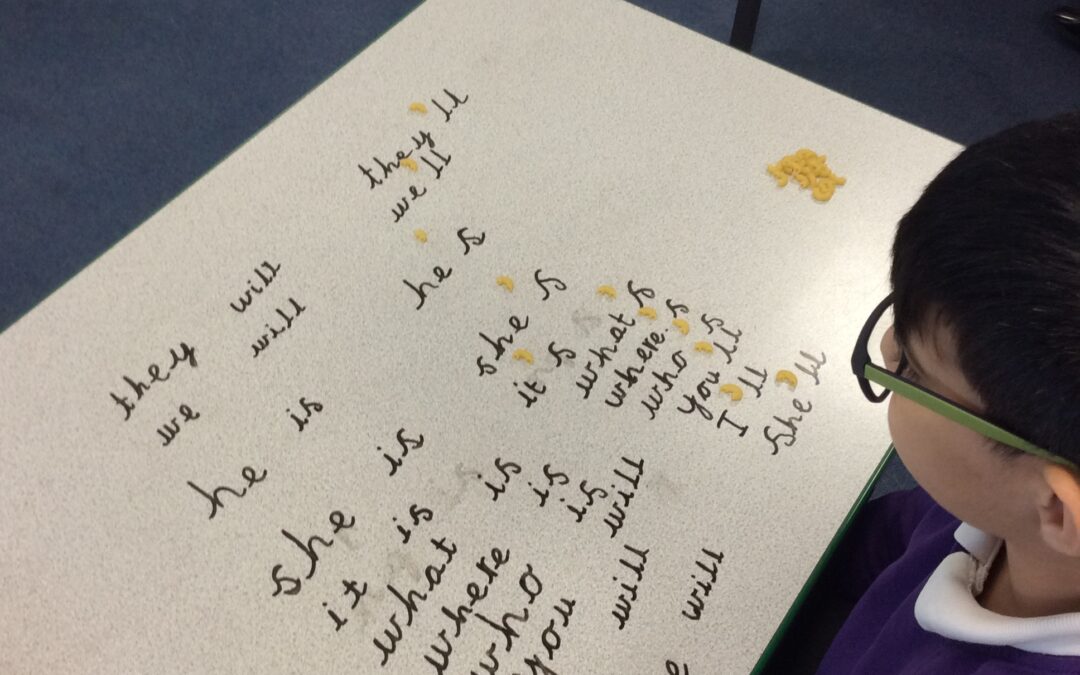 they will they'll
we will we'll
he is he's
she is she's
it is it's
what is what's
where is where's
who is who's
you will you'll
will I'll
will she'll